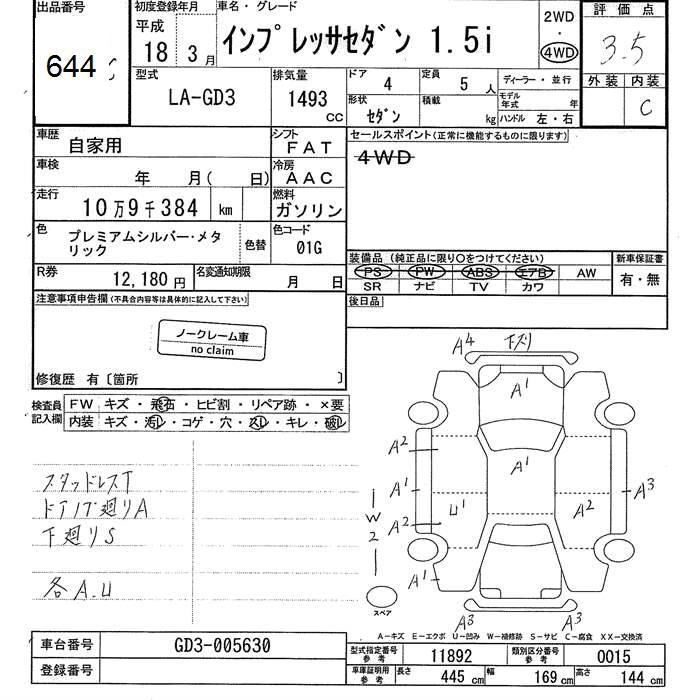 出品番号
644
初度登録年月
平成
18年 3月
車名・グレード
インプレッサセダン 1.5i
2WD
・
4WD
評価点
3.5
外装 内装
C
型式
LA-GD3
排気量
1493 CC
ドア 4
定員 5人
形状 セダン
積載 kg
ディーラー・並行
モデル年式 年
ハンドル 左・右
車歴 自家用
シフト FAT
車検 年 月( 日)
冷房 AAC
走行 10万9千384 km
燃料 ガソリン
色 プレミアムシルバー・メタリック
色替
色コード 01G
R券 12,180円
名変通知期限 月 日
セールスポイント(正常に機能するものに限ります)
4WD
装備品 (純正品に限り○をつけてください)
PS PW ABS エアB AW
SR ナビ TV カワ
新車保証書
有・無
後日品
注意事項申告欄(不具合内容等は具体的に記入して下さい)
ノークレーム車
no claim
修復歴 有〔箇所 〕
検査員記入欄
FW キズ・飛石・ヒビ割・リペア跡・×要
内装 キズ・汚レ・コゲ・穴・スレ・キレ・破レ
スタッドレスT
ドアノブ廻りA
下廻りS
各A.U
A4 下ズリ
A1
A2
A1
A1
A2
U1
A2
A3
W2
A1
A3
A3
スペア
A-キズ E-エクボ U-凹み W-補修跡 S-サビ C-腐食 XX-交換済
車台番号 GD3-005630
登録番号
型式指定番号 参考 11892
類別区分番号 参考 0015
車庫証明用 参考 長さ 445cm 幅 169cm 高さ 144cm